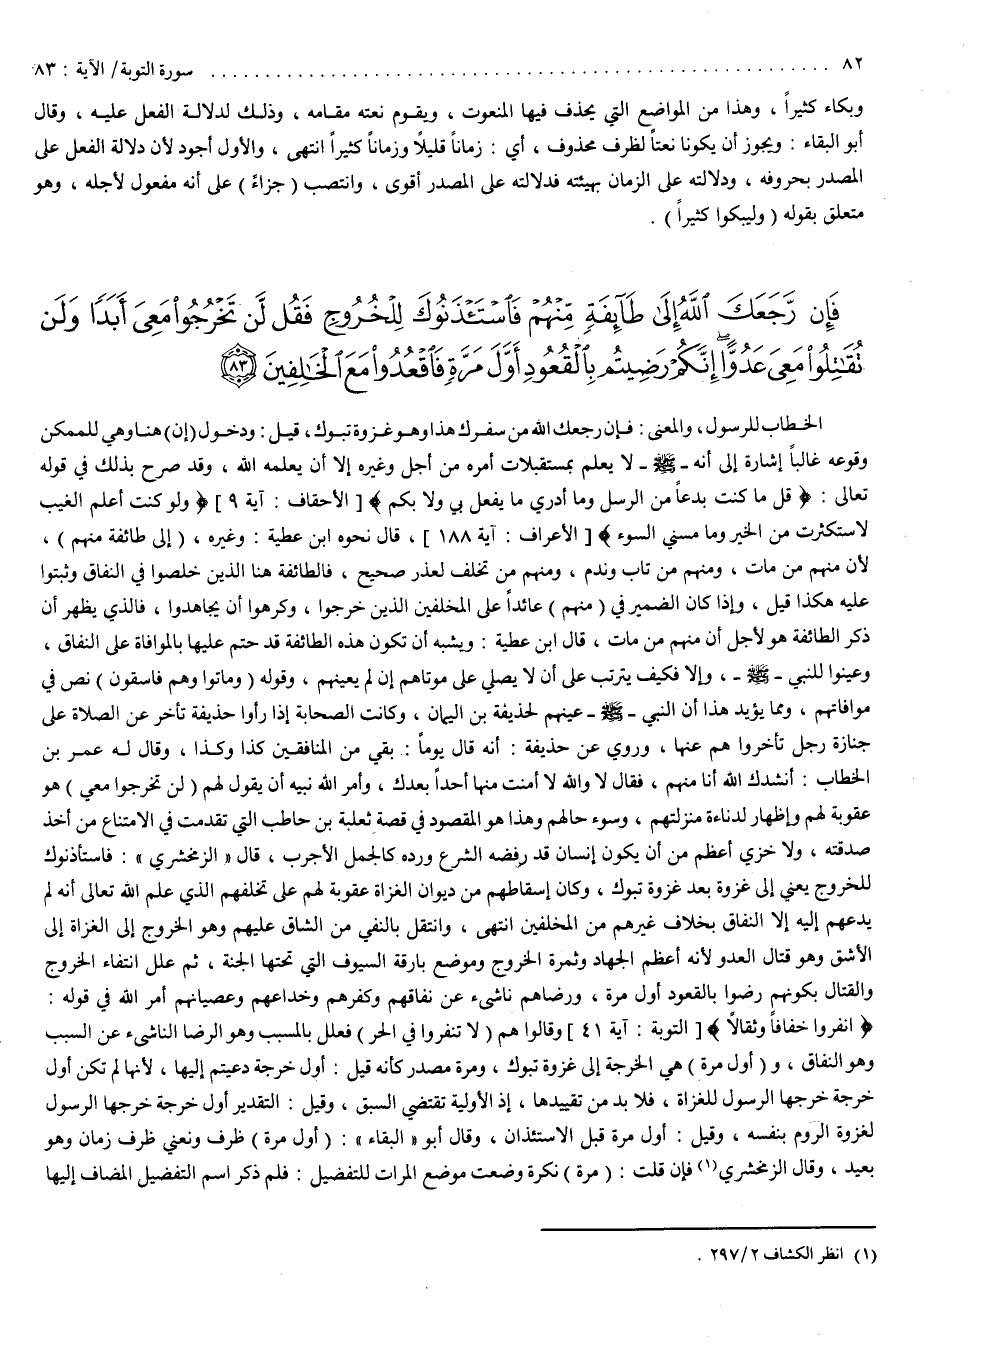 ٨٢ ........................................................ سورة التوبة/ الآية : ٨٣
وبكاء كثيراً ، وهذا من المواضع التي يحذف فيها المنعوت ، ويقوم نعته مقامه ، وذلك لدلالة الفعل عليه ، وقال
أبو البقاء : ويجوز أن يكونا نعتاً لظرف محذوف ، أي : زماناً قليلاً وزماناً كثيراً انتهى ، والأول أجود لأن دلالة الفعل على
المصدر بحروفه ، ودلالته على الزمان بهيئته فدلالته على المصدر أقوى ، وانتصب ( جزاءً ) على أنه مفعول لأجله ، وهو
متعلق بقوله ( وليبكوا كثيراً ) .
فَإِن رَّجَعَكَ ٱللَّهُ إِلَىٰ طَآئِفَةٍ مِّنْهُمْ فَٱسْتَـْٔذَنُوكَ لِلْخُرُوجِ فَقُل لَّن تَخْرُجُوا۟ مَعِىَ أَبَدًا وَلَن
تُقَـٰتِلُوا۟ مَعِىَ عَدُوًّا ۖ إِنَّكُمْ رَضِيتُم بِٱلْقُعُودِ أَوَّلَ مَرَّةٍ فَٱقْعُدُوا۟ مَعَ ٱلْخَـٰلِفِينَ ٨٣
الخطاب للرسول ، والمعنى : فإن رجعك الله من سفرك هذا وهو غزوة تبوك ، قيل : ودخول (إن) هنا وهي للممكن
وقوعه غالباً إشارة إلى أنه ـ ﷺ ـ لا يعلم بمستقبلات أمره من أجل وغيره إلا أن يعلمه الله ، وقد صرح بذلك في قوله
تعالى : ﴿ قل ما كنت بدعاً من الرسل وما أدري ما يفعل بي ولا بكم ﴾ [ الأحقاف : آية ٩ ] ﴿ ولو كنت أعلم الغيب
لاستكثرت من الخير وما مسني السوء ﴾ [ الأعراف : آية ١٨٨ ] ، قال نحوه ابن عطية : وغيره ، ( إلى طائفة منهم ) ،
لأن منهم من مات ، ومنهم من تاب وندم ، ومنهم من تخلف لعذر صحيح ، فالطائفة هنا الذين خلصوا في النفاق وثبتوا
عليه هكذا قيل ، وإذا كان الضمير في ( منهم ) عائداً على المخلفين الذين خرجوا ، وكرهوا أن يجاهدوا ، فالذي يظهر أن
ذكر الطائفة هو لأجل أن منهم من مات ، قال ابن عطية : ويشبه أن تكون هذه الطائفة قد حتم عليها بالموافاة على النفاق ،
وعينوا للنبي ـ ﷺ ـ ، وإلا فكيف يترتب على أن لا يصلي على موتاهم إن لم يعينهم ، وقوله ( وماتوا وهم فاسقون ) نص في
موافاتهم ، ومما يؤيد هذا أن النبي ـ ﷺ ـ عينهم لحذيفة بن اليمان ، وكانت الصحابة إذا رأوا حذيفة تأخر عن الصلاة على
جنازة رجل تأخروا هم عنها ، وروي عن حذيفة : أنه قال يوماً : بقي من المنافقين كذا وكذا ، وقال له عمر بن
الخطاب : أنشدك الله أنا منهم ، فقال لا والله لا أمنت منها أحداً بعدك ، وأمر الله نبيه أن يقول لهم ( لن تخرجوا معي ) هو
عقوبة لهم وإظهار لدناءة منزلتهم ، وسوء حالهم وهذا هو المقصود في قصة ثعلبة بن حاطب التي تقدمت في الامتناع من أخذ
صدقته ، ولا خزي أعظم من أن يكون إنسان قد رفضه الشرع ورده كالجمل الأجرب ، قال « الزمخشري » : فاستأذنوك
للخروج يعني إلى غزوة بعد غزوة تبوك ، وكان إسقاطهم من ديوان الغزاة عقوبة لهم على تخلفهم الذي علم الله تعالى أنه لم
يدعهم إليه إلا النفاق بخلاف غيرهم من المخلفين انتهى ، وانتقل بالنفي من الشاق عليهم وهو الخروج إلى الغزاة إلى
الأشق وهو قتال العدو لأنه أعظم الجهاد وثمرة الخروج وموضع بارقة السيوف التي تحتها الجنة ، ثم علل انتفاء الخروج
والقتال بكونهم رضوا بالقعود أول مرة ، ورضاهم ناشىء عن نفاقهم وكفرهم وخداعهم وعصيانهم أمر الله في قوله :
﴿ انفروا خفافاً وثقالاً ﴾ [ التوبة : آية ٤١ ] وقالوا هم ( لا تنفروا في الحر ) فعلل بالمسبب وهو الرضا الناشىء عن السبب
وهو النفاق ، و ( أول مرة ) هي الخرجة إلى غزوة تبوك ، ومرة مصدر كأنه قيل : أول خرجة دعيتم إليها ، لأنها لم تكن أول
خرجة خرجها الرسول للغزاة ، فلا بد من تقييدها ، إذ الأولية تقتضي السبق ، وقيل : التقدير أول خرجة خرجها الرسول
لغزوة الروم بنفسه ، وقيل : أول مرة قبل الاستئذان ، وقال أبو « البقاء » : ( أول مرة ) ظرف ونعني ظرف زمان وهو
بعيد ، وقال الزمخشري(١) فإن قلت : ( مرة ) نكرة وضعت موضع المرات للتفضيل : فلم ذكر اسم التفضيل المضاف إليها
(١) انظر الكشاف ٢٩٧/٢ .